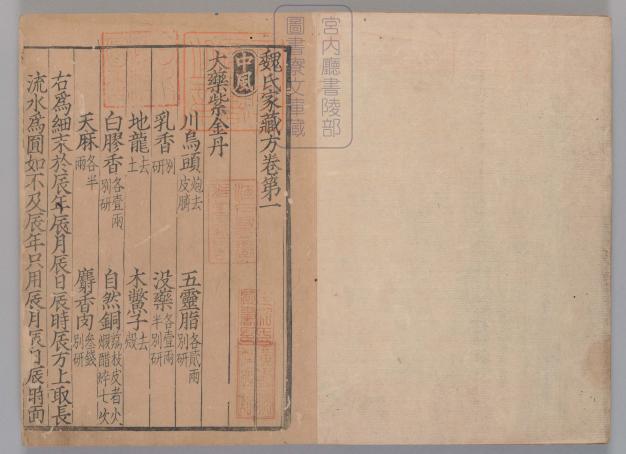 魏氏家藏方卷第一
中風
大藥紫金丹
川烏頭炮去皮臍 五靈脂各貳兩別研
乳香別研 没藥各壹兩半別研
地龍去土 木鱉子去殻
白膠香各壹兩別研 自然銅茘枝皮者火煆醋淬七次
天麻各半兩 麝香肉叁錢別研
右爲細末於辰年辰月辰日辰時辰方上取長
流水爲圓如不及辰年只用辰月辰日辰時面
宮内廳書陵部
圖書寮文庫藏